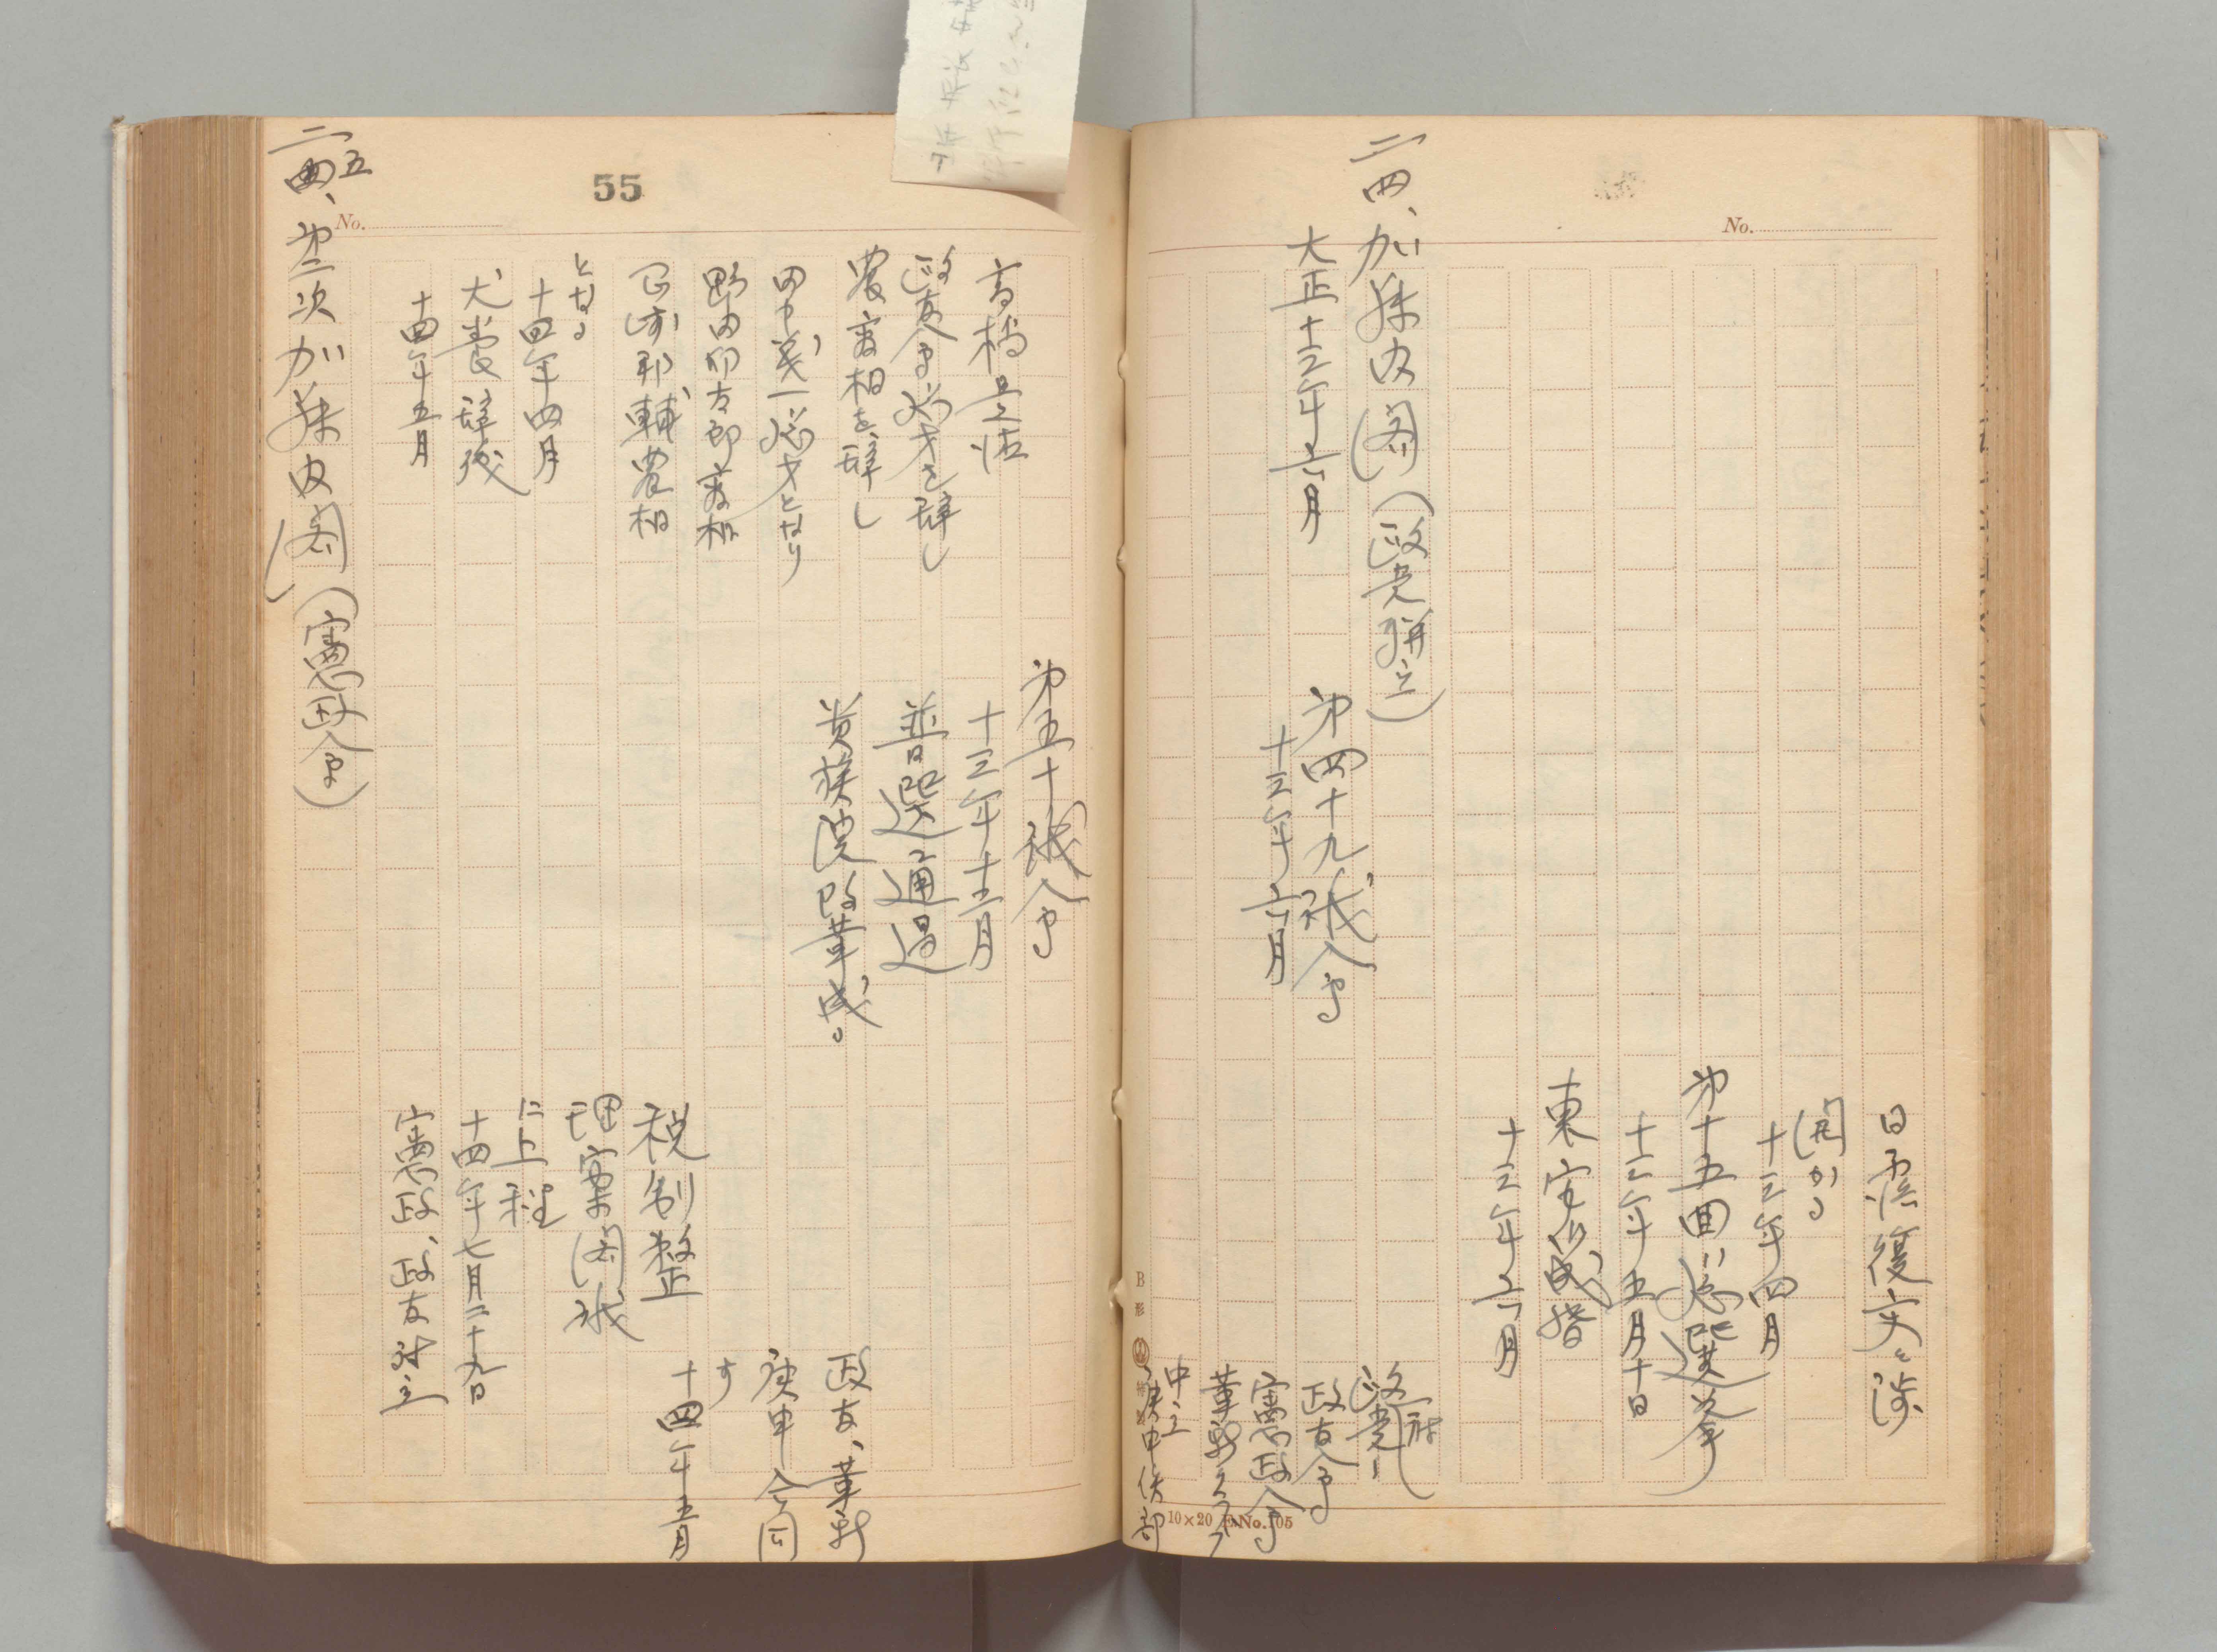 No.
日露復交々渉
開かる
十三年四月
第十五回総選挙
十三年五月十日
東宮御成婚
十三年六月
二四、加藤内閣（政党聯立）
大正十三年六月
第四十九議会
十三年六月
政党
政友会
憲政会
革新クラブ
中立
庚申倶楽部
B形
10×20
No.105
55
No.
高橋是清
政友会総才を辞し
農商相を辞し
田中義一総才となり
野田卯太郎商相
岡崎邦輔農相
となる
十四年四月
犬養辞職
十四年五月
第五十議会
十三年十二月
普選通過
貴族院改革成る
政友、革新
庚申合同
す
十四年五月
税制整
理案閣議
に上程
十四年七月二十九日
憲政、政友対立
二五、第二次加藤内閣（憲政会）